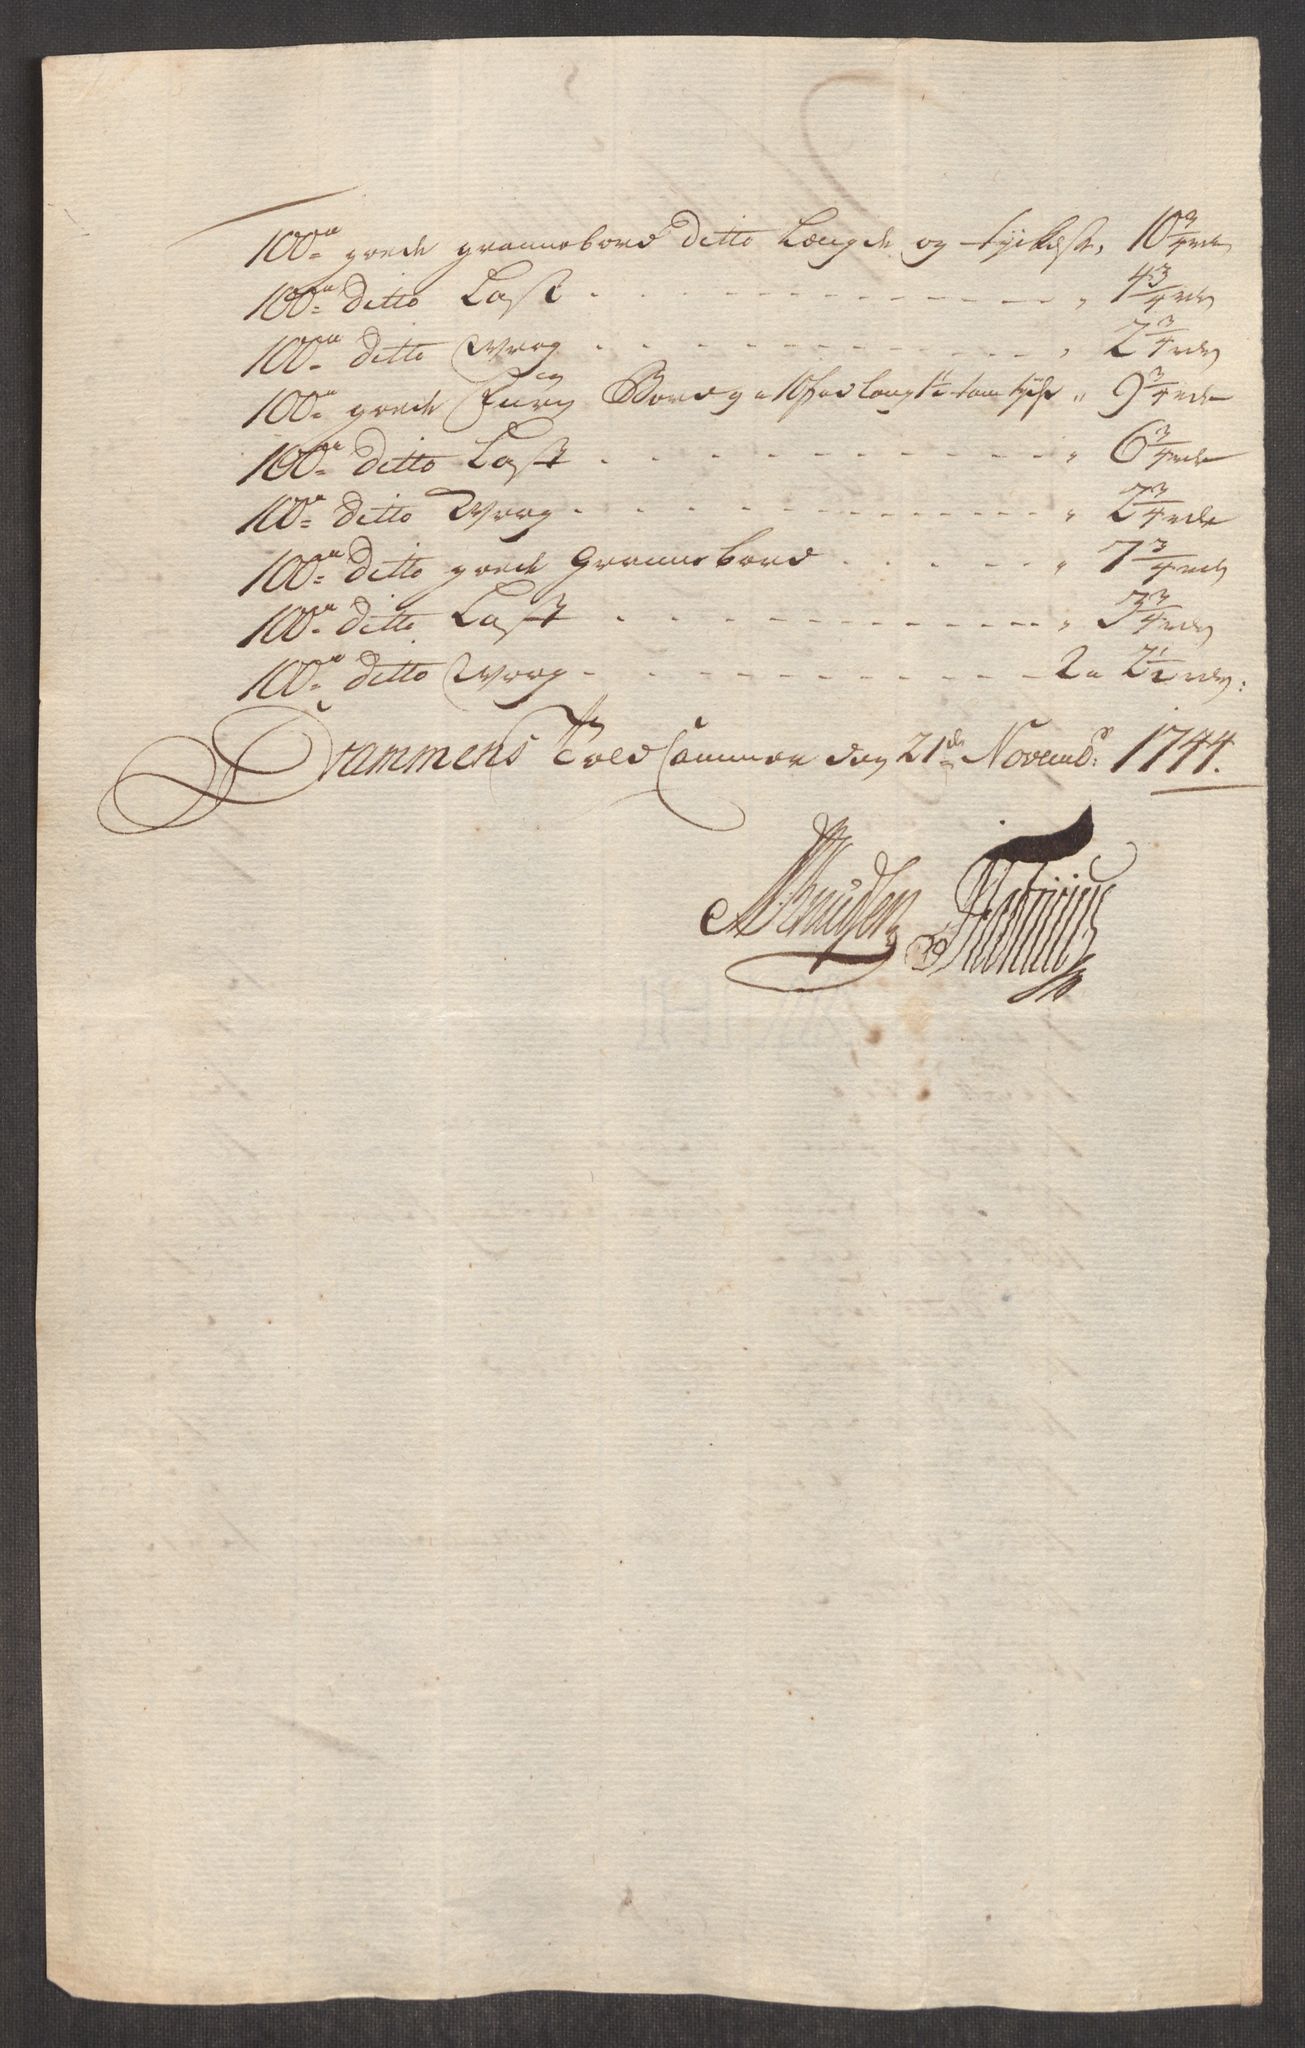 100de goede grannebord ditto Længde og tyckelse, 10 3/4 rdr
100de ditto Last - - - - " 4 3/4 rdr
100de ditto Wrag - - - - " 2 3/4 rdr
100de goede Furu Bord a 10 fod lang 1 1/4 tom tyk " 9 3/4 rdr
100de ditto Last - - - - " 6 3/4 rdr
100de ditto Wrag - - - - " 2 3/4 rdr
100de ditto goede Grannebord - - - - " 7 3/4 rdr
100de ditto Last - - - - " 3 3/4 rdr
100de ditto Wrag - - - - 2 a 2 1/2 rdr:
Drammens Told Cammer den 21de Novembr: 1744.
Knudsen